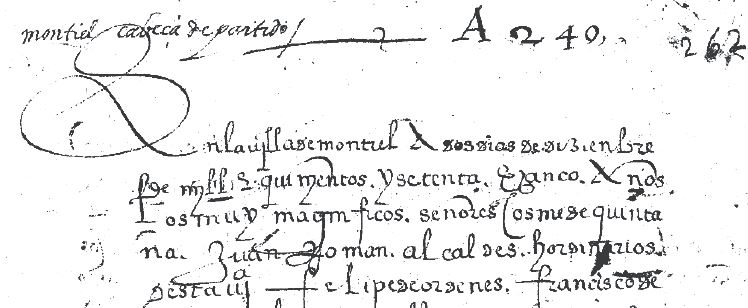 montiel cabeça de partido/ A 240, 262
En la uilla de montiel A dos dias de dizienbre
de myll E quinientos. y setenta. E çinco. Años
los muy magnificos. señores Cosme de quinta
ña. Juan Roman. alcaldes. hordinarios.
desta uª felipe de ordenes. francisco de